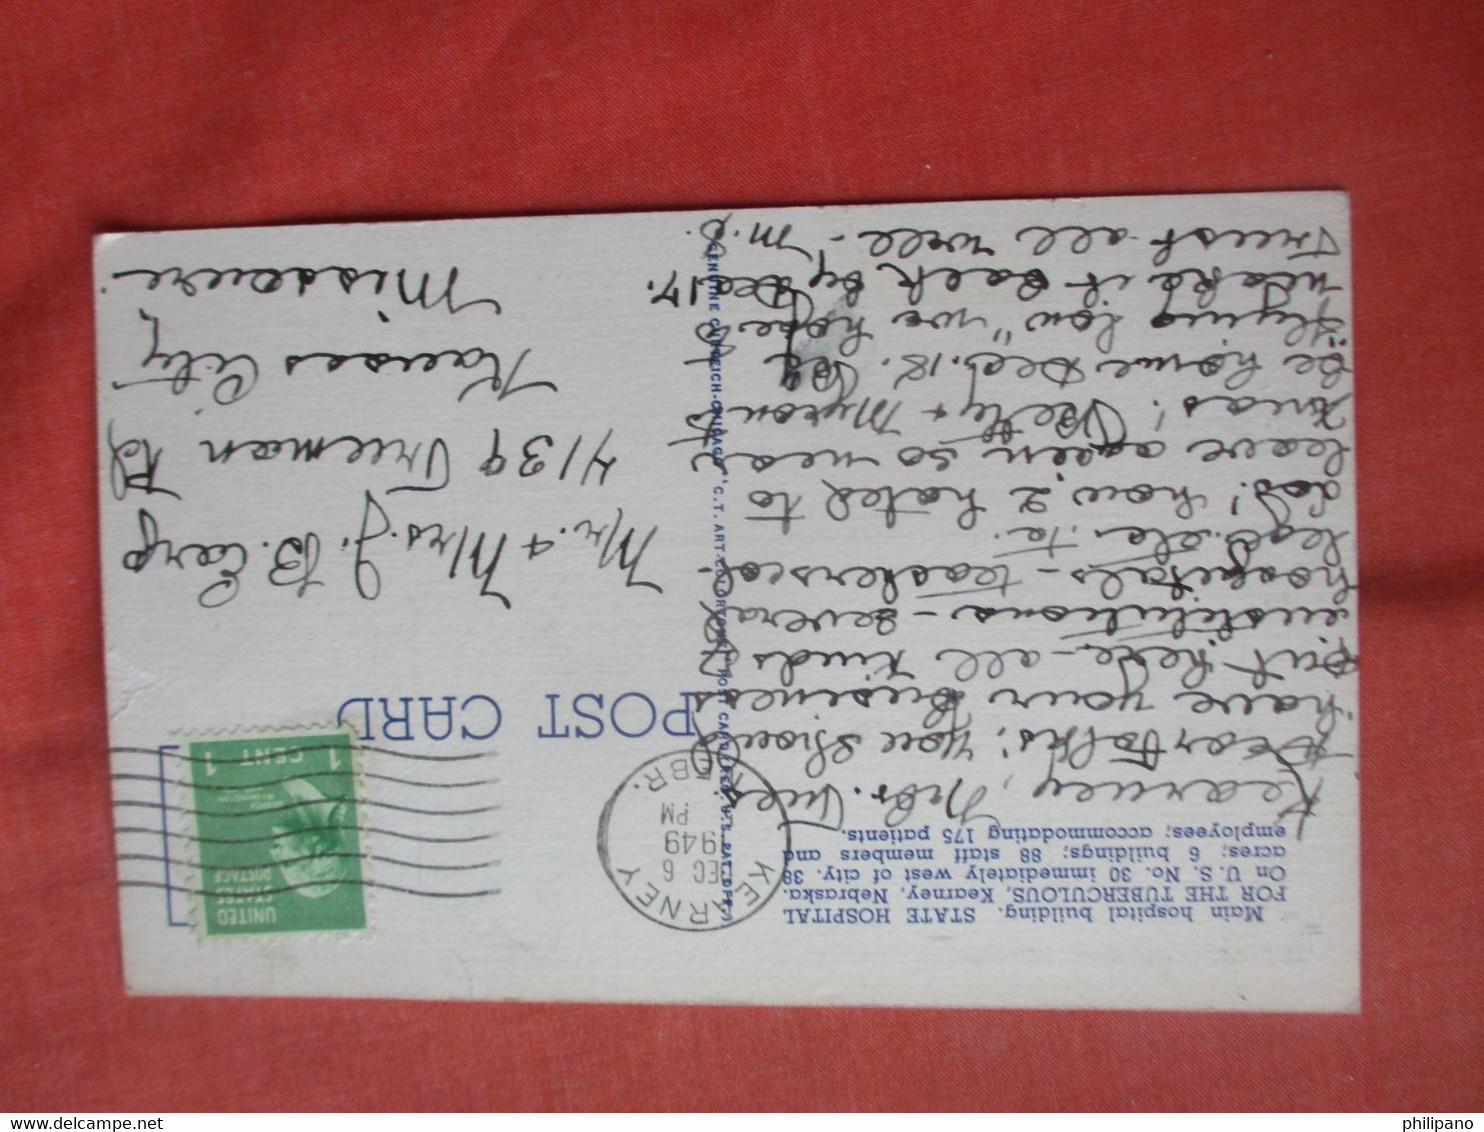 Main hospital building. STATE HOSPITAL
FOR THE TUBERCULOUS, Kearney, Nebraska.
On U. S. No. 30 immediately west of city. 38
acres; 6 buildings; 88 staff members and
employees; accommodating 175 patients.
Kearney, Nebr. Tues.
Dear Folks; you should
have your business
out here - all kinds
institutions - several
hospitals - teachers col-
lege. etc. etc.
how I hated to
leave again so near
Xmas! Betty & Myron to
be home Dec. 18. By
flying low" we hope to
make it back by Dec. 17.
Trust all well - M.E.
GENUINE CURTEICH-CHICAGO "C.T. ART-COLORTONE" POST CARD (REG. U.S. PAT. OFF.)
POST CARD
KEARNEY
DEC 6
1949
PM
NEBR.
UNITED
STATES
POSTAGE
1 CENT 1
Mr. & Mrs. J. B. Earp
4139 Freeman Rd
Kansas City,
Missouri.
philipano